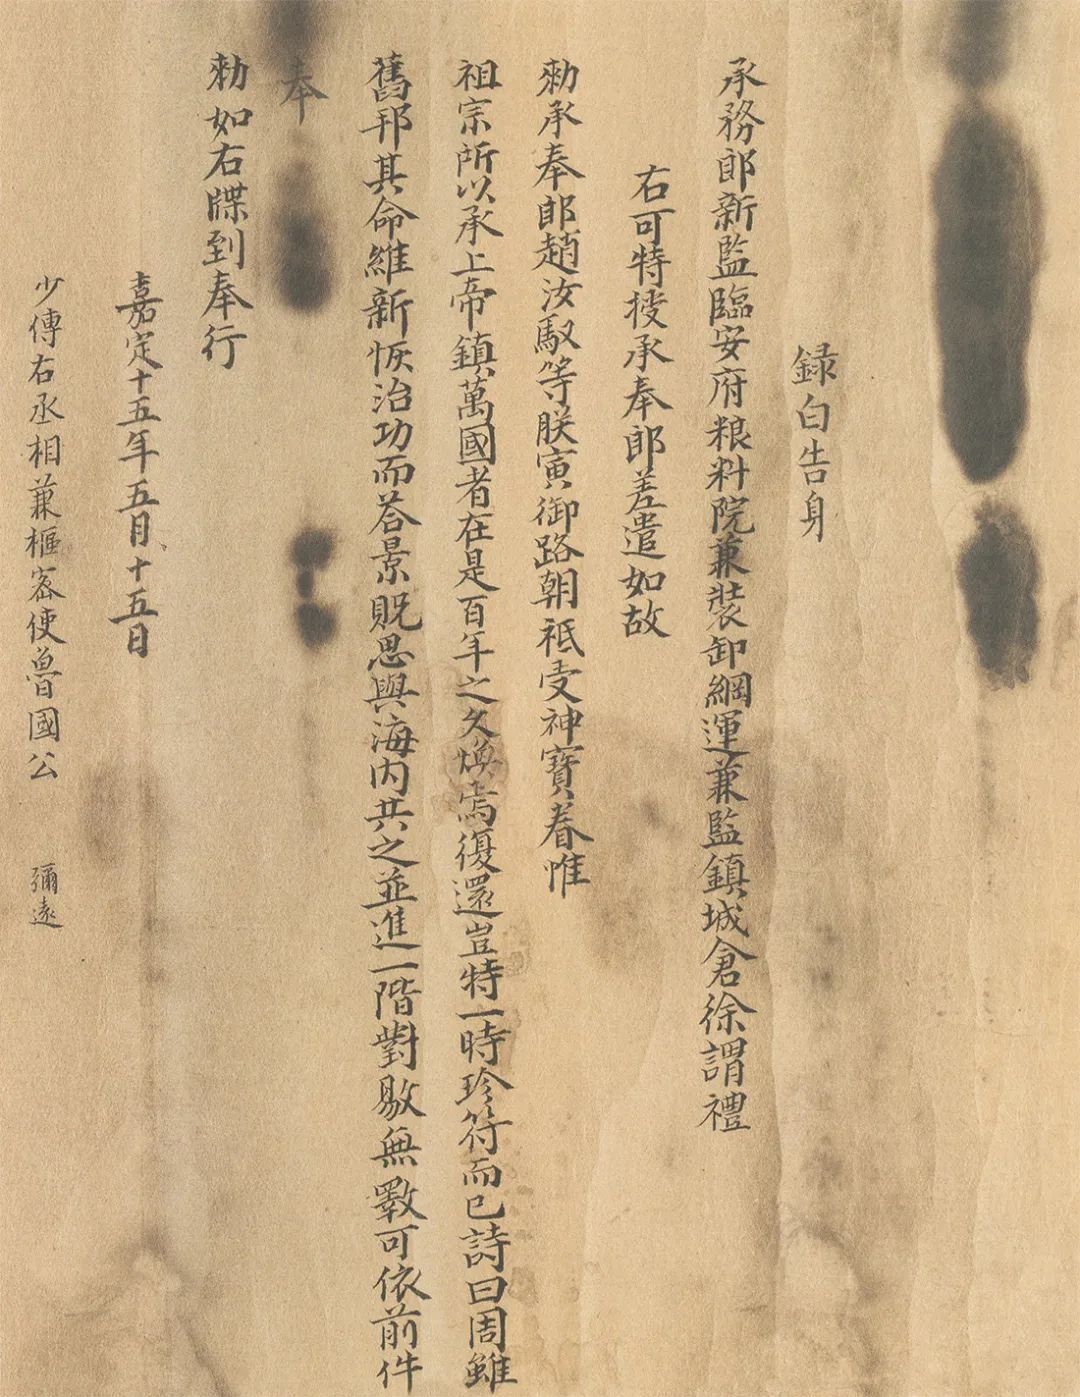 録白告身
承務郎新監臨安府粮料院兼裝卸綱運兼監鎮城倉徐謂禮
右可特授承奉郎差遣如故
勑承奉郎趙汝馭等朕寅御路朝祗受神寶眷惟
祖宗所以承上帝鎮萬國者在是百年之久煥焉復還豈特一時珍符而已詩曰周雖
舊邦其命維新恢治功而荅景貺思與海内共之並進一階對敭無斁可依前件
奉
勑如右牒到奉行
嘉定十五年五月十五日
少傅右丞相兼樞密使魯國公 彌遠